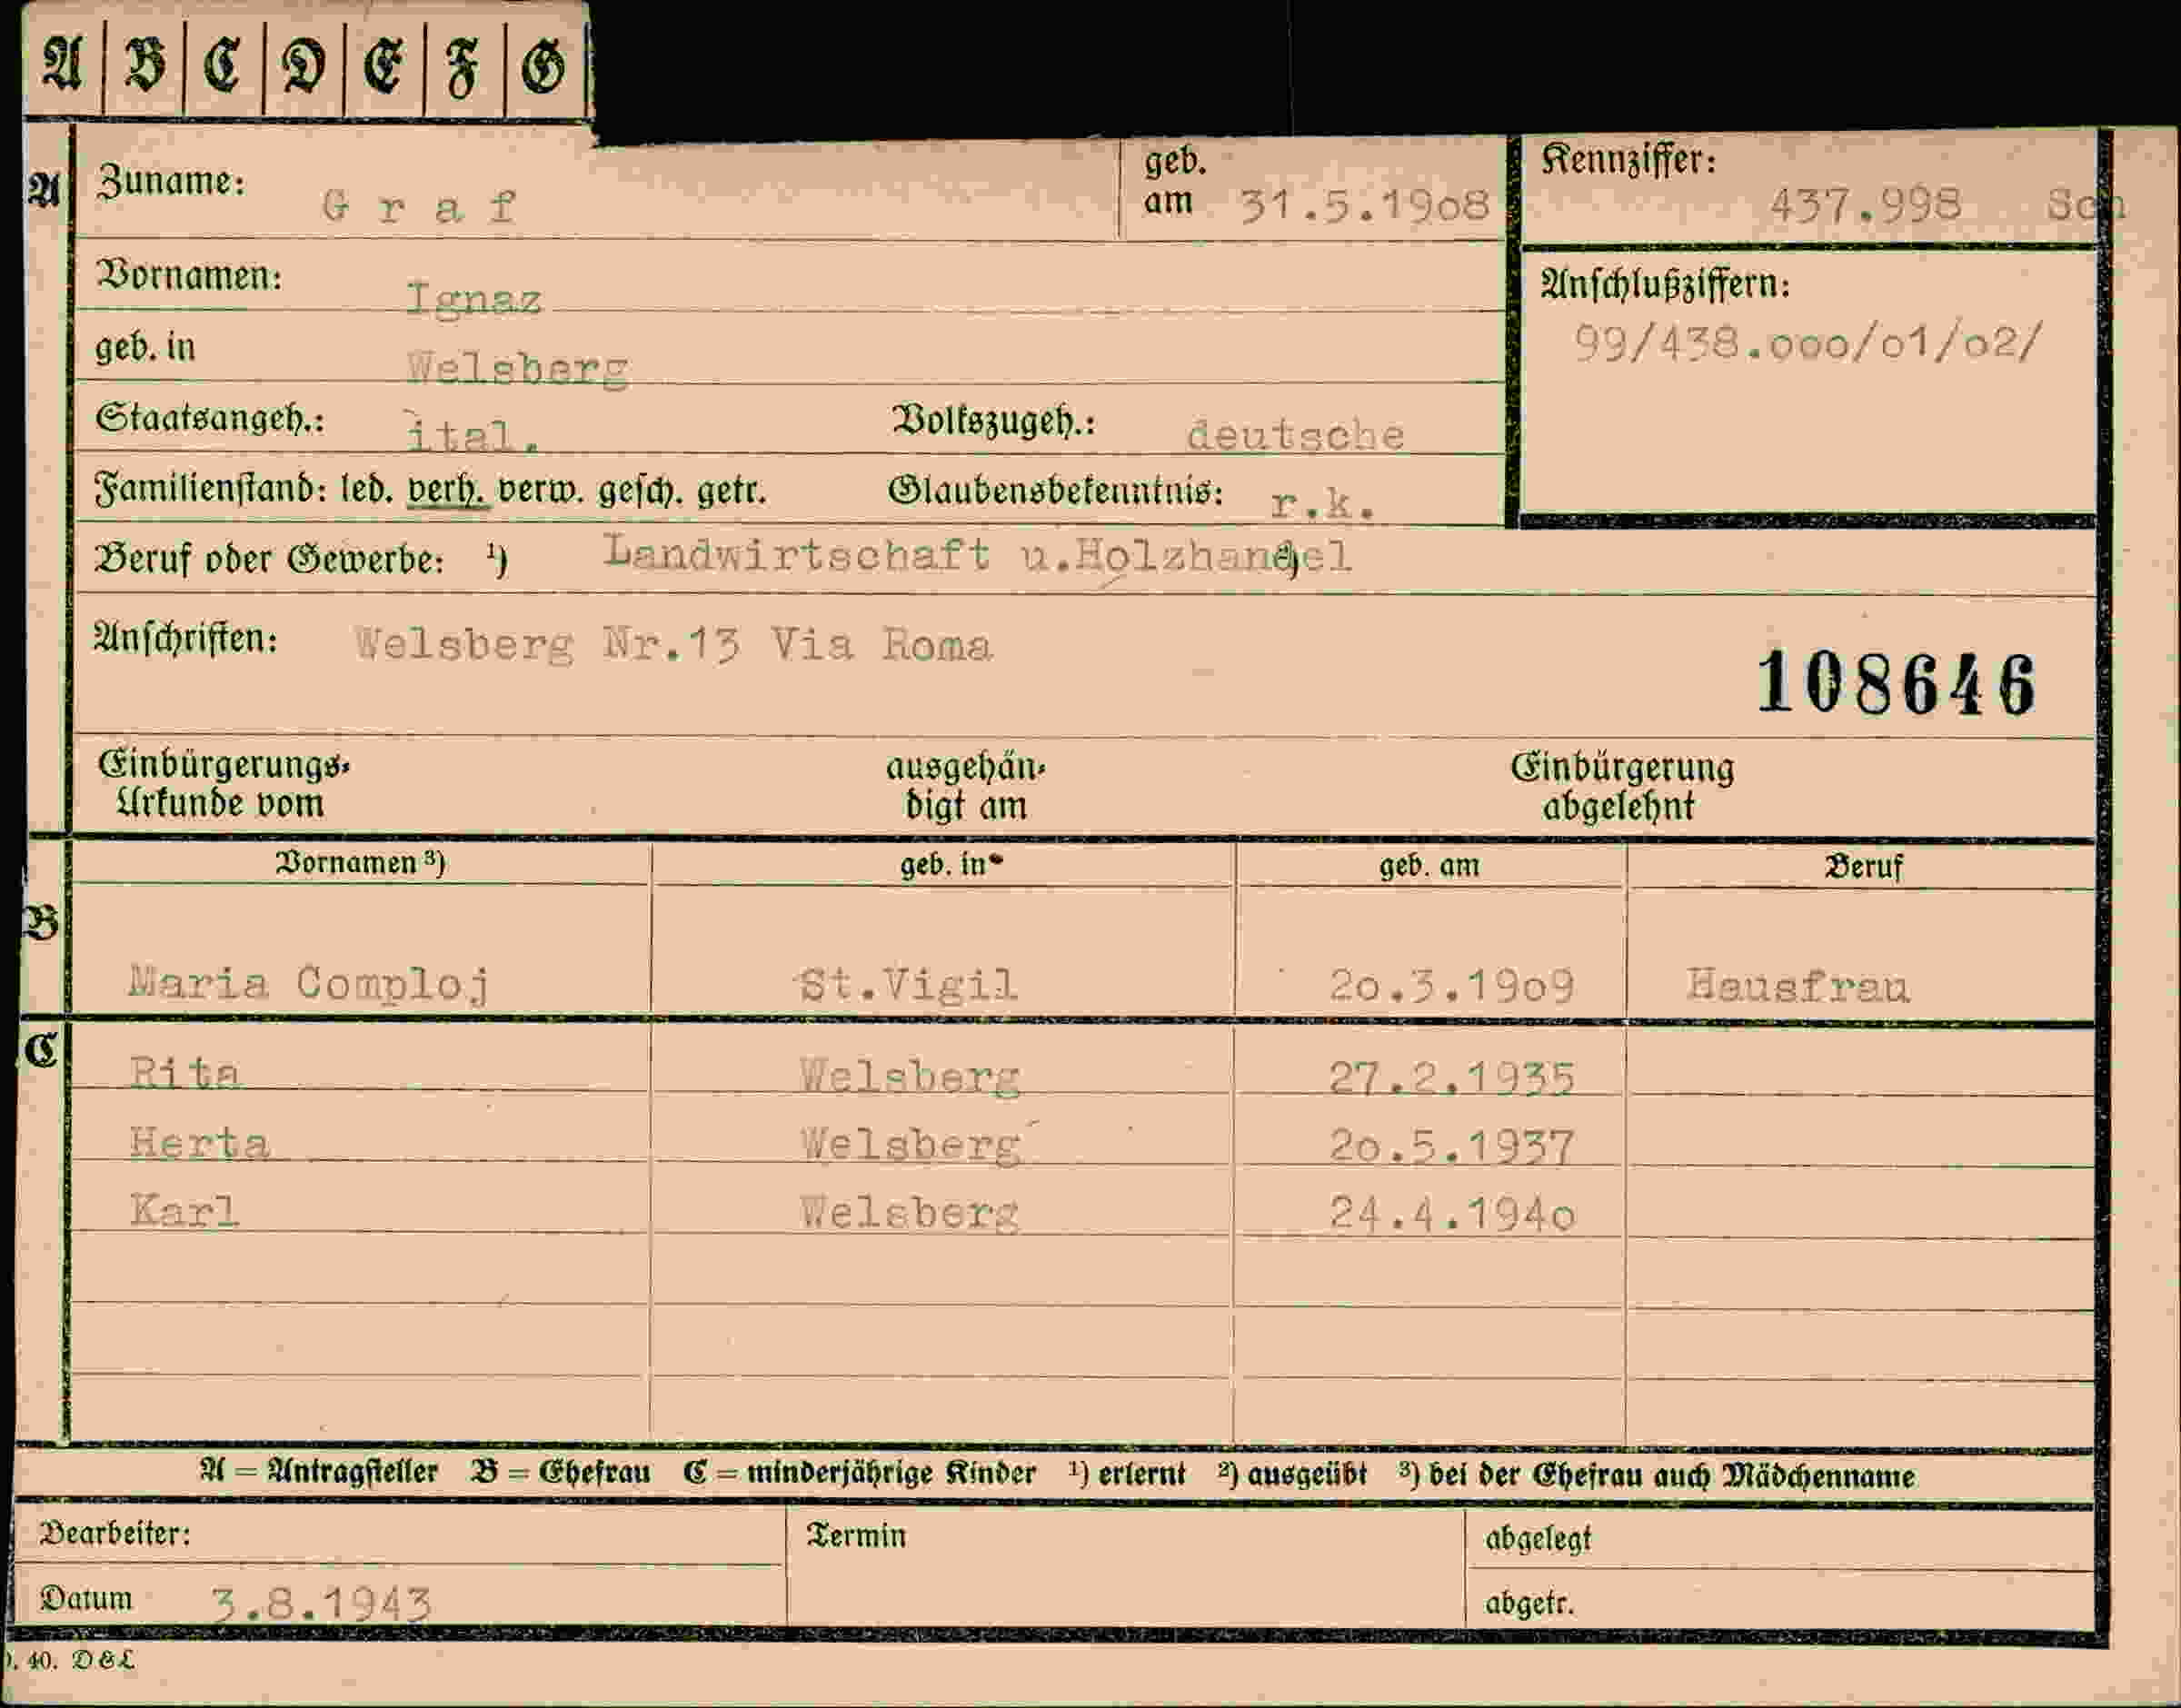 A B C D E F G
A Zuname: Graf geb. am 31.5.19o8 Kennziffer: 437.998 Sch
Vornamen: Ignaz Anschlußziffern:
geb. in Welsberg 99/438.ooo/o1/o2/
Staatsangeh.: ital. Volkszugeh.: deutsche
Familienstand: led. verh. verw. gesch. getr. Glaubensbekenntnis: r.k.
Beruf oder Gewerbe: ¹) Landwirtschaft u.Holzhandel
Anschriften: Welsberg Nr.13 Via Roma
108646
Einbürgerungs- ausgehän- Einbürgerung
Urkunde vom digt am abgelehnt
Vornamen ³) geb. in geb. am Beruf
B
Maria Comploj St.Vigil 2o.3.19o9 Hausfrau
C
Rita Welsberg 27.2.1935
Herta Welsberg 2o.5.1937
Karl Welsberg 24.4.194o
A = Antragsteller B = Ehefrau C = minderjährige Kinder ¹) erlernt ²) ausgeübt ³) bei der Ehefrau auch Mädchenname
Bearbeiter: Termin abgelegt
Datum 3.8.1943 abgetr.
40. D & L